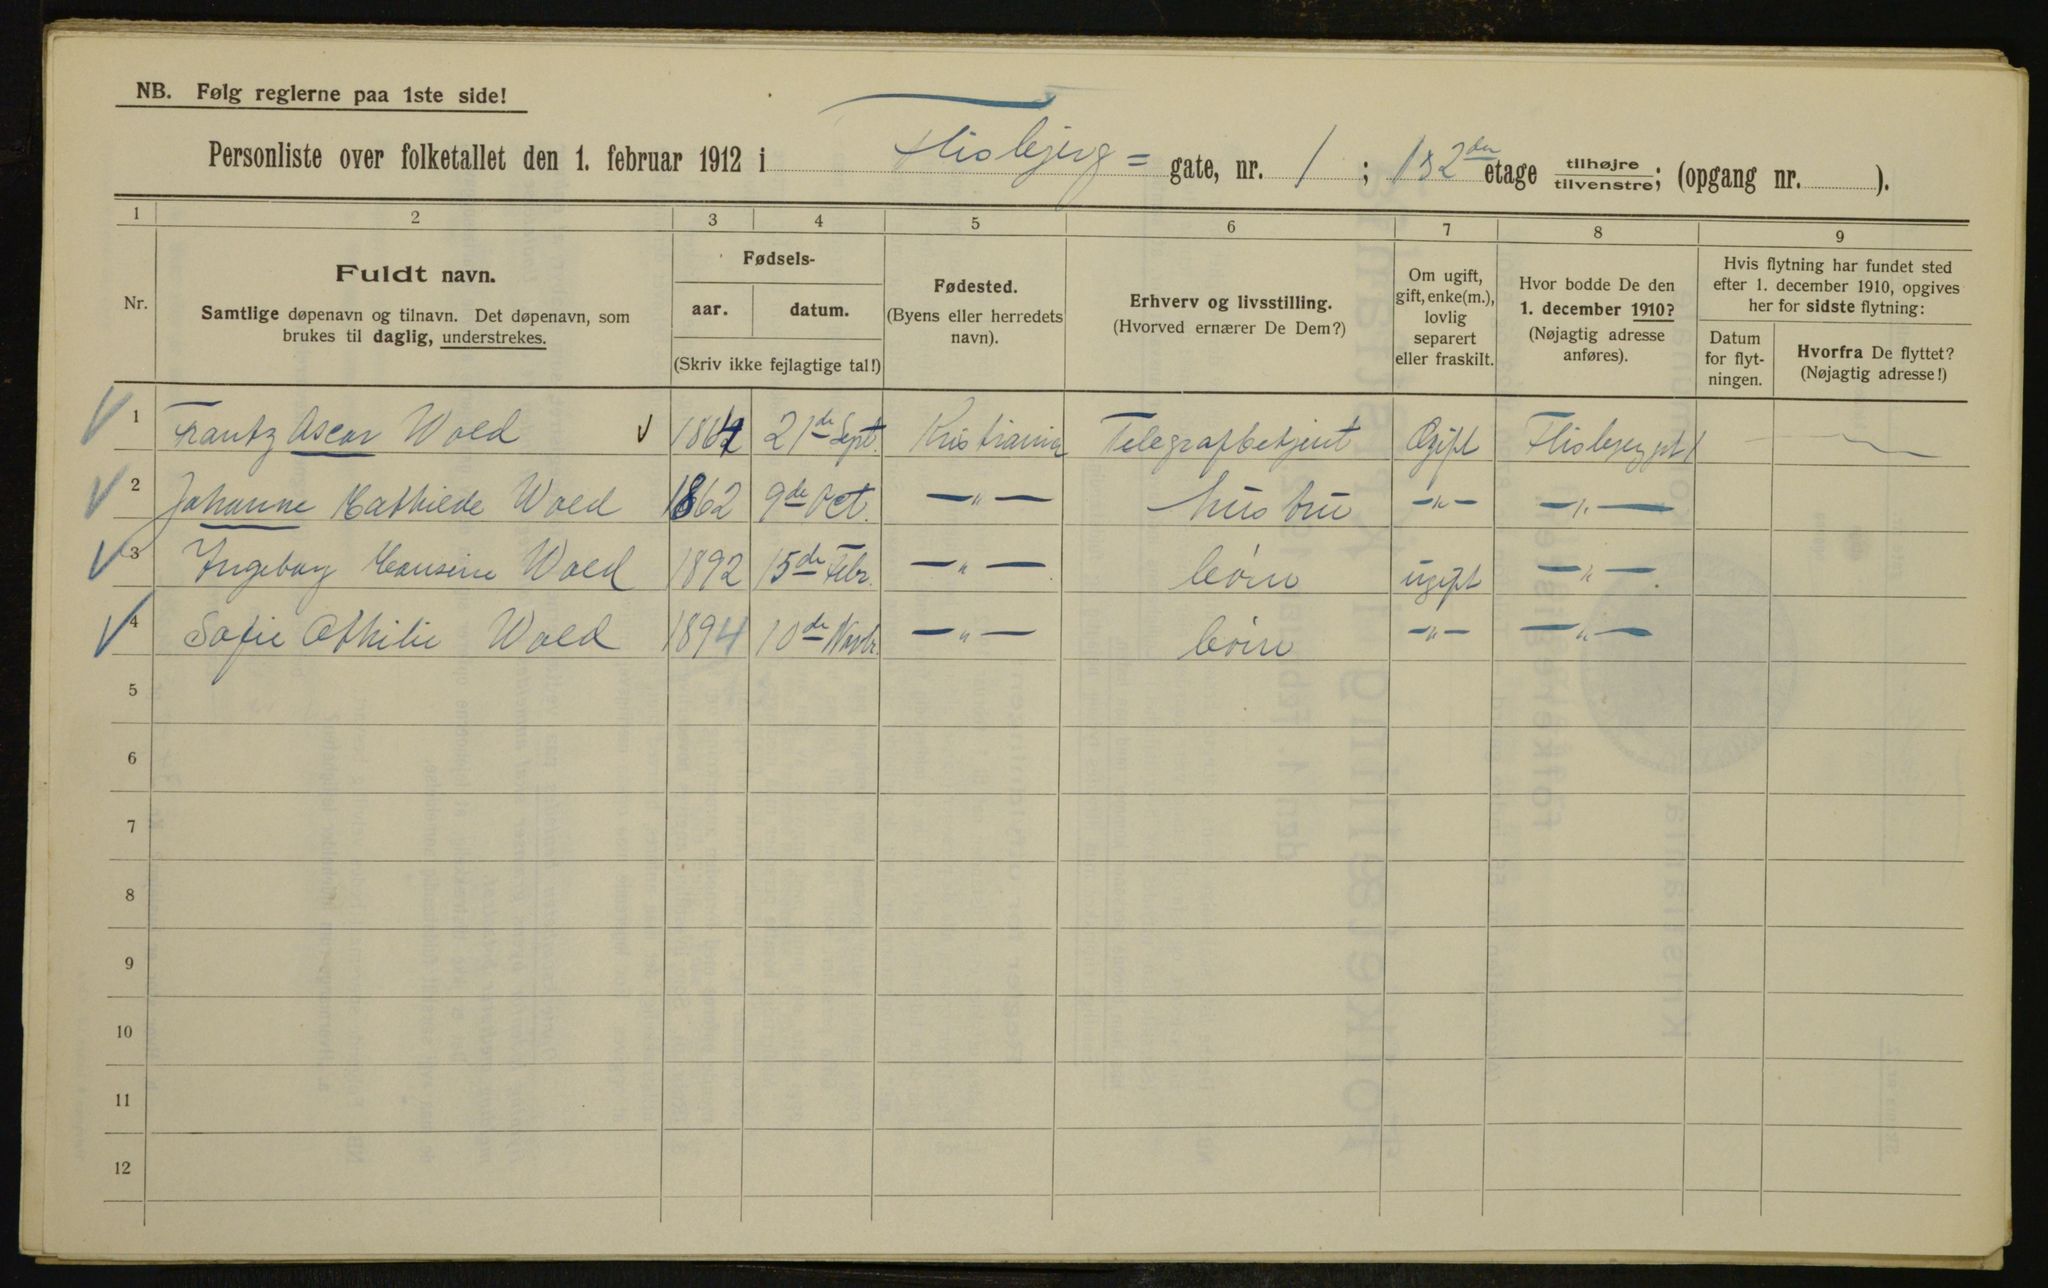 NB. Følg reglerne paa 1ste side!
Personliste over folketallet den 1. februar 1912 i Flisbjerg= gate, nr. 1; 1 & 2den etage tilhøjre/tilvenstre; (opgang nr. ).
1 2 3 4 5 6 7 8 9
Nr.
Fuldt navn.
Samtlige døpenavn og tilnavn. Det døpenavn, som
brukes til daglig, understrekes.
Fødsels-
aar. datum.
(Skriv ikke fejlagtige tal!)
Fødested.
(Byens eller herredets
navn).
Erhverv og livsstilling.
(Hvorved ernærer De Dem?)
Om ugift,
gift, enke(m.),
lovlig
separert
eller fraskilt.
Hvor bodde De den
1. december 1910?
(Nøjagtig adresse
anføres).
Hvis flytning har fundet sted
efter 1. december 1910, opgives
her for sidste flytning:
Datum
for flyt-
ningen.
Hvorfra De flyttet?
(Nøjagtig adresse!)
1 Frantz Oscar Wold 21de Sept. Kristiania Telegrafbetjent Gift
2 Johanne Mathilde Wold 1862 9de Oct. —"— hustru —"— —"—
3 Ingeborg Hansine Wold 1892 15de Febr. —"— børn ugift —"—
4 Sofie Othilie Wold 1894 10de Novbr. —"— børn —"— —"—
5
6
7
8
9
10
11
12